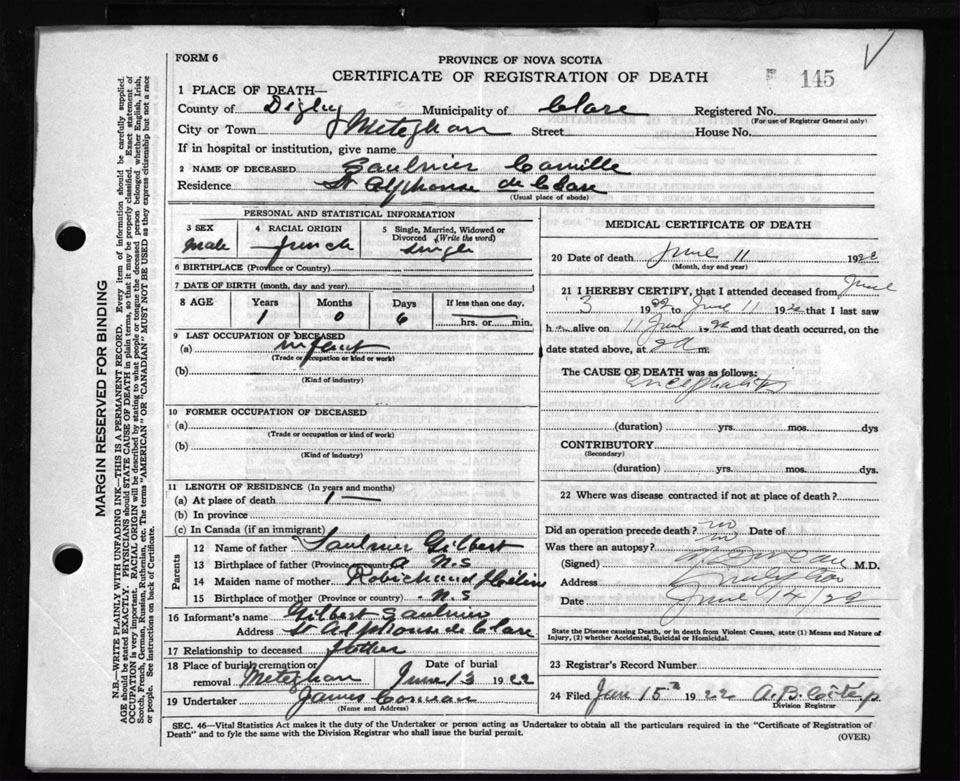 FORM 6
PROVINCE OF NOVA SCOTIA
CERTIFICATE OF REGISTRATION OF DEATH
145
1 PLACE OF DEATH—
County of Digby Municipality of Clare Registered No.
(For use of Registrar General only)
City or Town Meteghan Street House No.
If in hospital or institution, give name
2 NAME OF DECEASED Saulnier Camille
Residence St Alphonse de Clare
(Usual place of abode)
PERSONAL AND STATISTICAL INFORMATION
3 SEX 4 RACIAL ORIGIN 5 Single, Married, Widowed or Divorced (Write the word)
Male French Single
6 BIRTHPLACE (Province or Country)
7 DATE OF BIRTH (month, day and year)
8 AGE Years Months Days If less than one day,
1 0 6 hrs. or min.
9 LAST OCCUPATION OF DECEASED
(a) Infant
(Trade or occupation or kind or work)
(b)
(Kind of industry)
10 FORMER OCCUPATION OF DECEASED
(a)
(Trade or occupation or kind of work)
(b)
(Kind of industry)
11 LENGTH OF RESIDENCE (In years and months)
(a) At place of death 1 —
(b) In province
(c) In Canada (if an immigrant)
Parents
12 Name of father Saulnier Gilbert
13 Birthplace of father (Province or country) N.S
14 Maiden name of mother Robichaud
15 Birthplace of mother (Province or country) N.S
16 Informant's name Gilbert Saulnier
Address St Alphonse de Clare
17 Relationship to deceased father
18 Place of burial, cremation or removal Meteghan Date of burial June 13 1922
19 Undertaker James
(Name and Address)
MEDICAL CERTIFICATE OF DEATH
20 Date of death June 11 1922
(Month, day and year)
21 I HEREBY CERTIFY, that I attended deceased from June
3 1922 to June 11 1922 that I last saw
h alive on 11 June 1922 and that death occurred, on the
date stated above, at 2 a m.
The CAUSE OF DEATH was as follows:
Encephalitis
(duration) yrs. mos. dys
CONTRIBUTORY
(Secondary)
(duration) yrs. mos. dys.
22 Where was disease contracted if not at place of death?
Did an operation precede death? no Date of
Was there an autopsy? no
(Signed) M.D.
Address
Date June 14/22
State the Disease causing Death, or in death from Violent Causes, state (1) Means and Nature of Injury, (2) whether Accidental, Suicidal or Homicidal.
23 Registrar's Record Number
24 Filed Jun 15th 1922 A. B.
Division Registrar
SEC. 46—Vital Statistics Act makes it the duty of the Undertaker or person acting as Undertaker to obtain all the particulars required in the "Certificate of Registration of
Death" and to fyle the same with the Division Registrar who shall issue the burial permit.
(OVER)
MARGIN RESERVED FOR BINDING
N.B.—WRITE PLAINLY WITH UNFADING INK—THIS IS A PERMANENT RECORD. Every item of information should be carefully supplied.
AGE should be stated EXACTLY. PHYSICIANS should STATE CAUSE OF DEATH in plain terms, so that it may be properly classified. Exact statement of
OCCUPATION is very important. RACIAL ORIGIN will be described by stating to what people or tongue the deceased person belonged whether English, Irish,
Scotch, French, German, Russian, Ruthenian, etc. The terms "AMERICAN" OR "CANADIAN" MUST NOT BE USED as they express citizenship but not a race
or people. See instructions on back of Certificate.